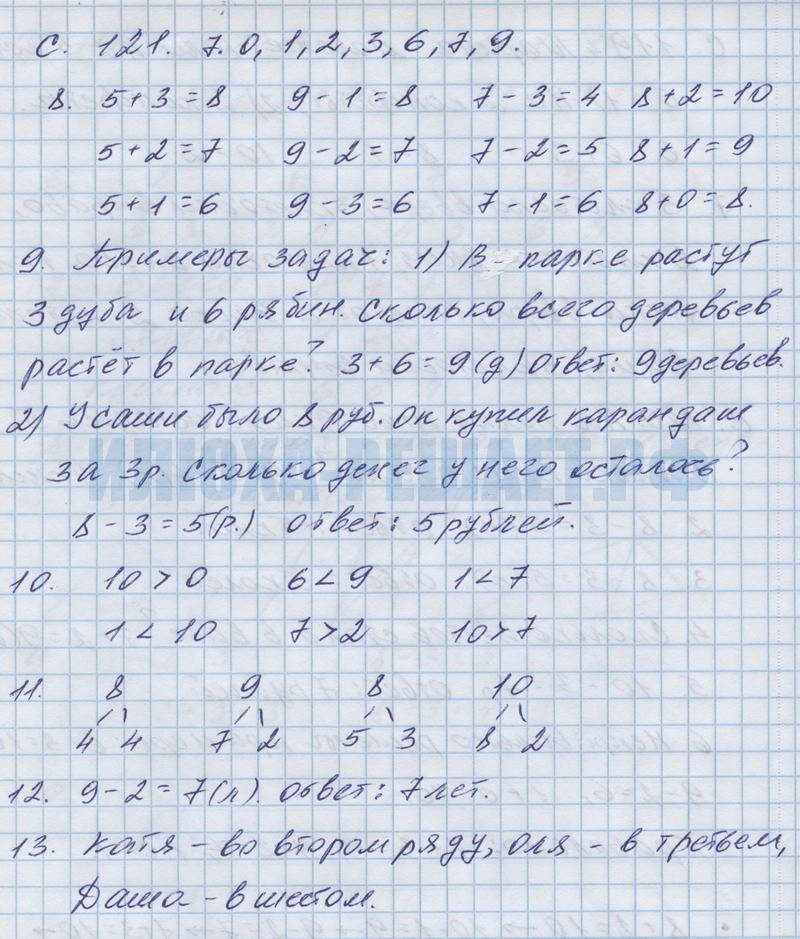 с. 121. 7. 0, 1, 2, 3, 6, 7, 9.
8. 5+3=8 9-1=8 7-3=4 8+2=10
5+2=7 9-2=7 7-2=5 8+1=9
5+1=6 9-3=6 7-1=6 8+0=8.
9. Примеры задач: 1) В парке растут
3 дуба и 6 рябин. Сколько всего деревьев
растёт в парке? 3+6=9(д) Ответ: 9 деревьев.
2) У Саши было 8 руб. Он купил карандаш
ИЛЮХА-РЕШАЕТ.РФ
за 3р. Сколько денег у него осталось?
8-3=5(р.) Ответ: 5 рублей.
10. 10>0 6<9 1<7
1<10 7>2 10>7
11. 8 9 8 10
4 4 7 2 5 3 8 2
12. 9-2=7(л). Ответ: 7 лет.
13. Катя - во втором ряду, Оля - в третьем,
Даша - в шестом.